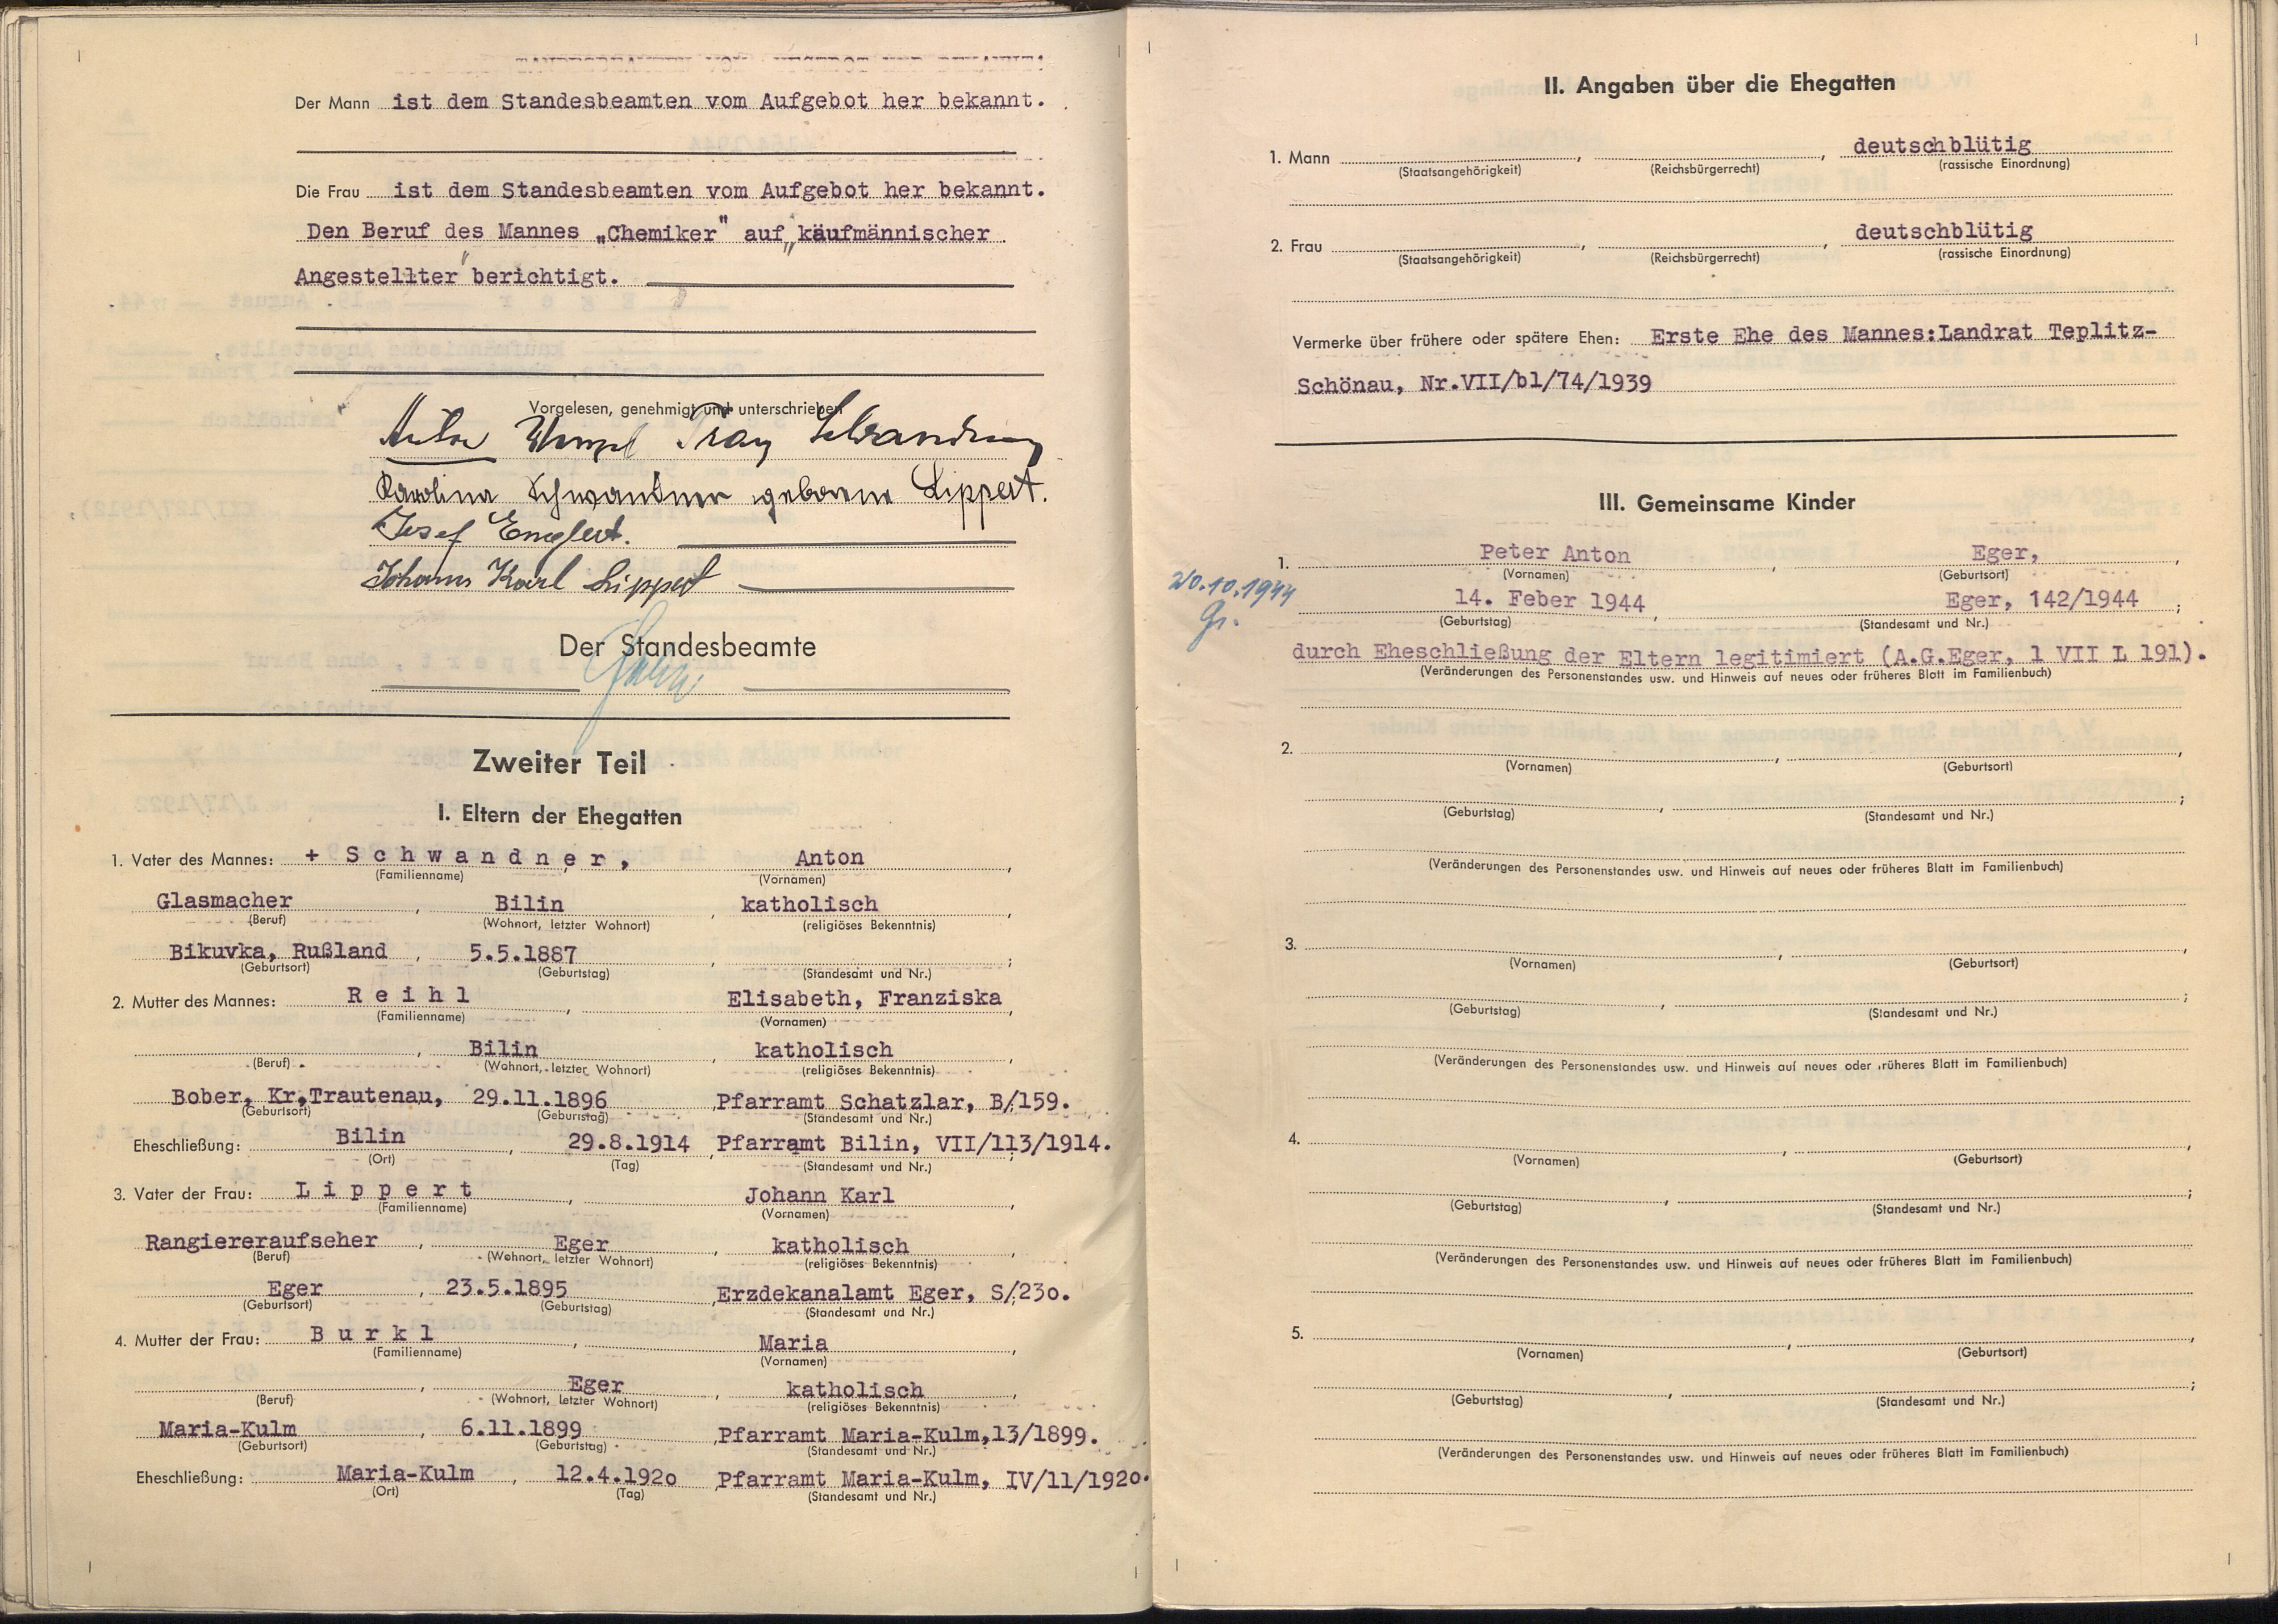 Der Mann ist dem Standesbeamten vom Aufgebot her bekannt.
Die Frau ist dem Standesbeamten vom Aufgebot her bekannt.
Den Beruf des Mannes „Chemiker" auf „käufmännischer
Angestellter" berichtigt.
Vorgelesen, genehmigt und unterschrieben
Anton Schwandner
Karolina Schwandner geborene Lippert.
Josef Englert.
Johann Karl Lippert
Der Standesbeamte
Zweiter Teil
I. Eltern der Ehegatten
1. Vater des Mannes: + Schwandner, Anton,
(Familienname) (Vornamen)
Glasmacher, Bilin, katholisch,
(Beruf) (Wohnort, letzter Wohnort) (religiöses Bekenntnis)
Bikuvka, Rußland, 5.5.1887, ;
(Geburtsort) (Geburtstag) (Standesamt und Nr.)
2. Mutter des Mannes: Reihl, Elisabeth, Franziska,
(Familienname) (Vornamen)
, Bilin, katholisch,
(Beruf) (Wohnort, letzter Wohnort) (religiöses Bekenntnis)
Bober, Kr.Trautenau, 29.11.1896, Pfarramt Schatzlar, B/159.
(Geburtsort) (Geburtstag) (Standesamt und Nr.)
Eheschließung: Bilin, 29.8.1914, Pfarramt Bilin, VII/113/1914.
(Ort) (Tag) (Standesamt und Nr.)
3. Vater der Frau: Lippert, Johann Karl,
(Familienname) (Vornamen)
Rangiereraufseher, Eger, katholisch,
(Beruf) (Wohnort, letzter Wohnort) (religiöses Bekenntnis)
Eger, 23.5.1895, Erzdekanalamt Eger, S/230.
(Geburtsort) (Geburtstag) (Standesamt und Nr.)
4. Mutter der Frau: Burkl, Maria,
(Familienname) (Vornamen)
, Eger, katholisch,
(Beruf) (Wohnort, letzter Wohnort) (religiöses Bekenntnis)
Maria-Kulm, 6.11.1899, Pfarramt Maria-Kulm,13/1899.
(Geburtsort) (Geburtstag) (Standesamt und Nr.)
Eheschließung: Maria-Kulm, 12.4.1920, Pfarramt Maria-Kulm, IV/11/1920.
(Ort) (Tag) (Standesamt und Nr.)
II. Angaben über die Ehegatten
1. Mann , , deutschblütig
(Staatsangehörigkeit) (Reichsbürgerrecht) (rassische Einordnung)
2. Frau , , deutschblütig
(Staatsangehörigkeit) (Reichsbürgerrecht) (rassische Einordnung)
Vermerke über frühere oder spätere Ehen: Erste Ehe des Mannes:Landrat Teplitz-
Schönau, Nr.VII/bl/74/1939
III. Gemeinsame Kinder
1. Peter Anton, Eger,
(Vornamen) (Geburtsort)
20.10.1944
14. Feber 1944, Eger, 142/1944;
Gr.
(Geburtstag) (Standesamt und Nr.)
durch Eheschließung der Eltern legitimiert (A.G.Eger, 1 VII L 191).
(Veränderungen des Personenstandes usw. und Hinweis auf neues oder früheres Blatt im Familienbuch)
2. , ,
(Vornamen) (Geburtsort)
, ;
(Geburtstag) (Standesamt und Nr.)
(Veränderungen des Personenstandes usw. und Hinweis auf neues oder früheres Blatt im Familienbuch)
3. , ,
(Vornamen) (Geburtsort)
, ;
(Geburtstag) (Standesamt und Nr.)
(Veränderungen des Personenstandes usw. und Hinweis auf neues oder früheres Blatt im Familienbuch)
4. , ,
(Vornamen) (Geburtsort)
, ;
(Geburtstag) (Standesamt und Nr.)
(Veränderungen des Personenstandes usw. und Hinweis auf neues oder früheres Blatt im Familienbuch)
5. , ,
(Vornamen) (Geburtsort)
, ;
(Geburtstag) (Standesamt und Nr.)
(Veränderungen des Personenstandes usw. und Hinweis auf neues oder früheres Blatt im Familienbuch)